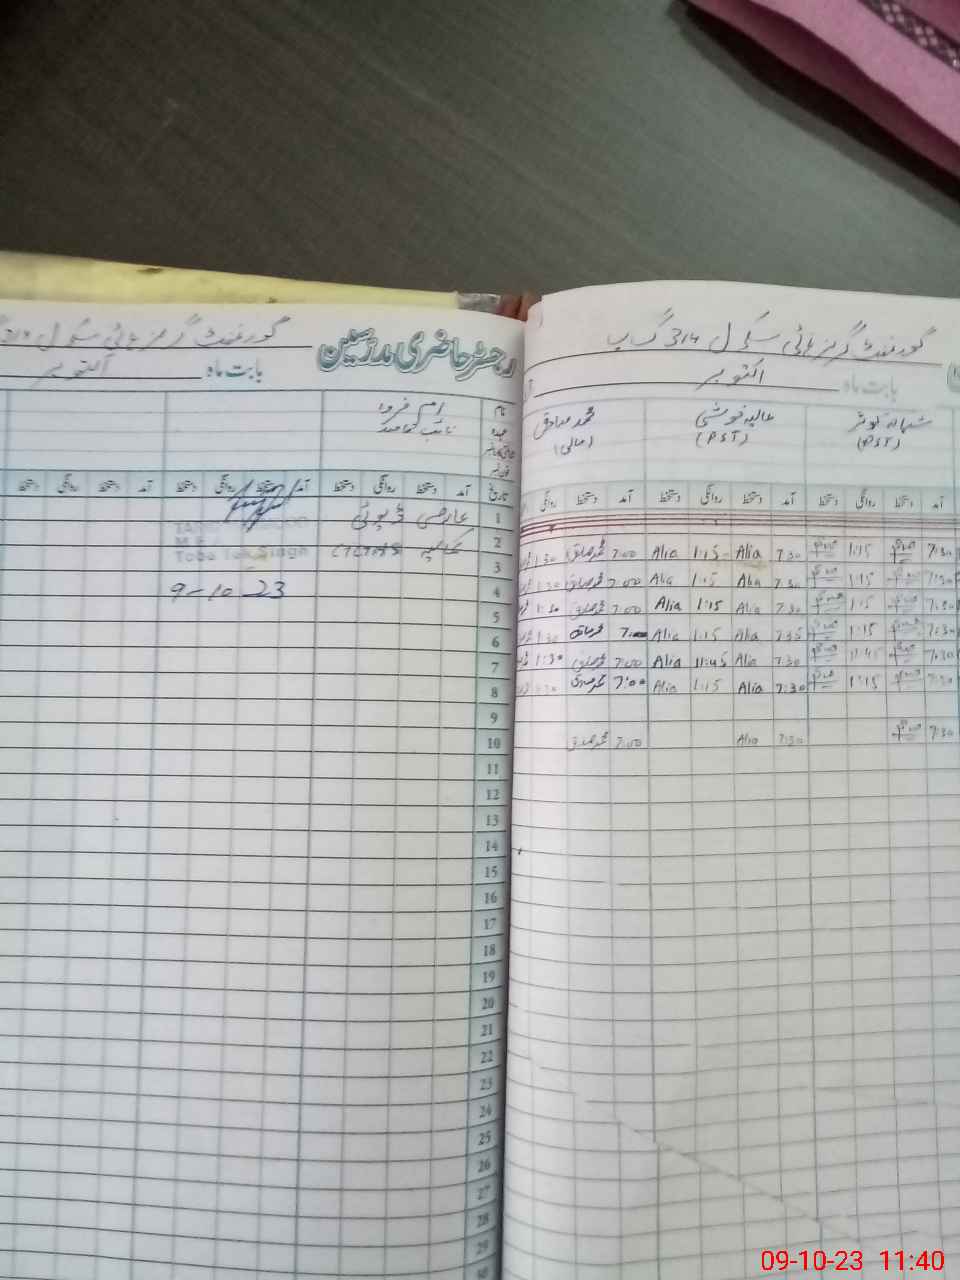 گورنمنٹ گرلز ہائی سکول 314 گ ب
بابت ماہ اکتوبر
شہانہ کوثر
(PST)
عالیہ خوشی
(PST)
محمد صادق
(مالی)
آمد دستخط روانگی دستخط آمد دستخط روانگی دستخط آمد دستخط روانگی
7:30 1:15 7:30 Alia 1:15 Alia 7:00 محمد صادق 1:30
7:30 1:15 7:30 Alia 1:15 Alia 7:00 محمد صادق 1:30
7:30 1:15 7:30 Alia 1:15 Alia 7:00 محمد صادق 1:30
7:30 1:15 7:35 Alia 1:15 Alia 7:00 1:30
7:30 11:45 7:30 Alia 11:45 Alia 7:00 محمد صادق 1:30
7:30 1:15 7:30 Alia 1:15 Alia 7:00 محمد صادق 1:30
7:30 7:30 Alia 7:00 محمد صادق
رجسٹر حاضری مدرسین
گورنمنٹ گرلز ہائی سکول
بابت ماہ اکتوبر
نام
عہدہ
ام فروہ
نائب قاصد
تاریخ آمد دستخط روانگی دستخط آمد دستخط روانگی دستخط آمد دستخط روانگی دستخط
1 عارضی ڈیوٹی
2 کمالیہ
Toba Tek Singh
3
4 9-10-23
5
6
7
8
9
10
11
12
13
14
15
16
17
18
19
20
21
22
23
24
25
26
27
28
29
30
09-10-23 11:40